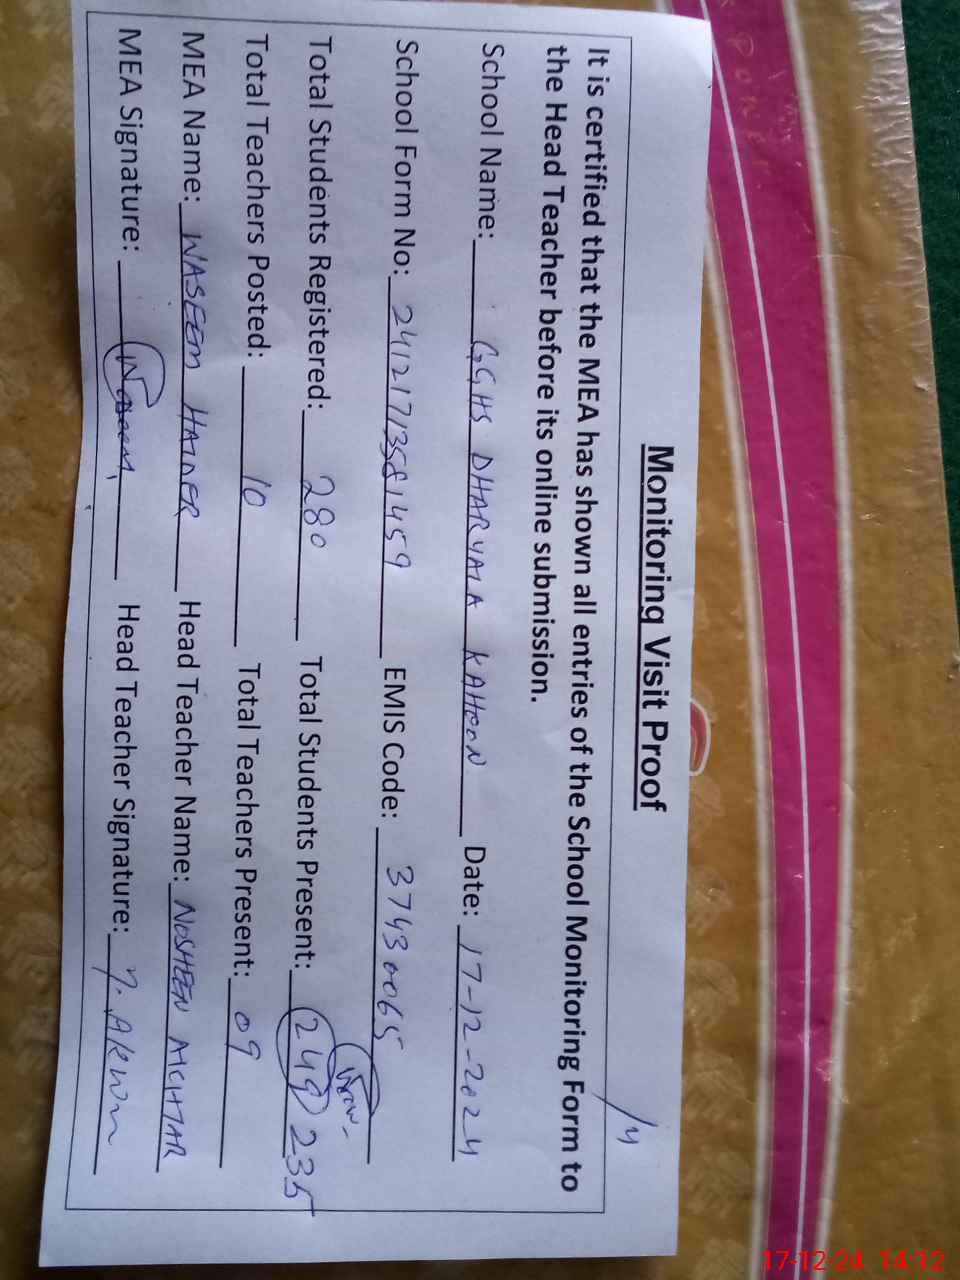 Monitoring Visit Proof
It is certified that the MEA has shown all entries of the School Monitoring Form to
the Head Teacher before its online submission.
School Name: GGHS DHARYALA KAHOON Date: 17-12-2024
School Form No: 24121713581459 EMIS Code: 37430065
Total Students Registered: 280 Total Students Present: 249 235
Total Teachers Posted: 10 Total Teachers Present: 09
MEA Name: WASEEM HAIDER Head Teacher Name: NOSHEEN AKHTAR
MEA Signature: Waseem Head Teacher Signature:
17-12-24 14:12